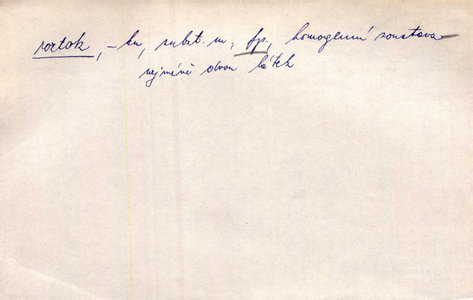 roztok, -ku, subst. m., fp., homogenní soustava
nejméně dvou látek